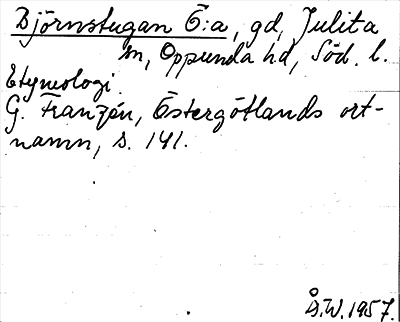 Björnstugan Ö:a, gd, Julita
sn, Oppunda hd, Söd. l.
Etymologi.
G. Franzén, Östergötlands ort-
namn, s. 141.
Å.W. 1957.